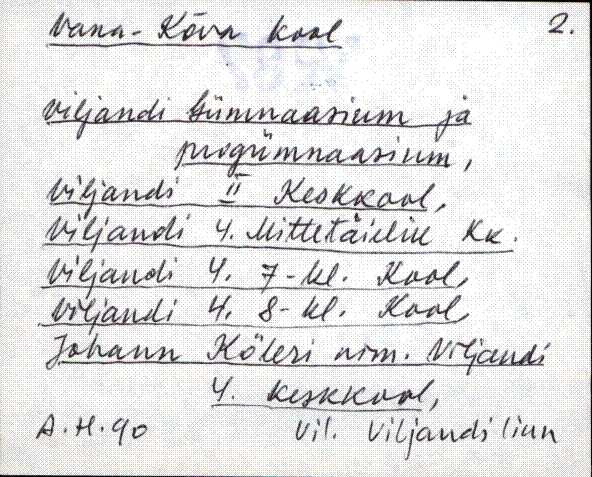 Vana-Kõva kool 2.
Viljandi Gümnaasium ja
progümnaasium,
Viljandi II Keskkool,
Viljandi 4. Mittetäielik Kk.
Viljandi 4. 7-kl. Kool,
Viljandi 4. 8-kl. Kool,
Johann Köleri nim. Viljandi
4. keskkool,
A.H.90 Vil. Viljandi linn